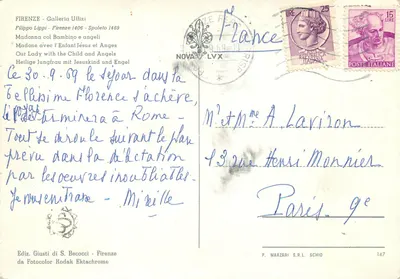 FIRENZE - Galleria Uffizi
Filippo Lippi - Firenze 1406 - Spoleto 1469
Madonna col Bambino e angeli
Madame avec l'Enfant Jésus et Anges
Our Lady with the Child and Angels
Heilige Jungfrau mit Jesuskind und Engel
Ce 30-9-69 le séjour dans la
bellissime Florence s'achève,
se terminera à Rome -
Tout se déroule suivant le plan
prévu dans la
par les oeuvres inoubliables.
Je vous embrasse - Mireille
France
NOVA LVX
25
15
POSTE ITALIANE
Mr et Mme A. Laviron
13 rue Henri Monnier
Paris 9e
Ediz. Giusti di S. Becocci - Firenze
da Fotocolor Kodak Ektachrome
167